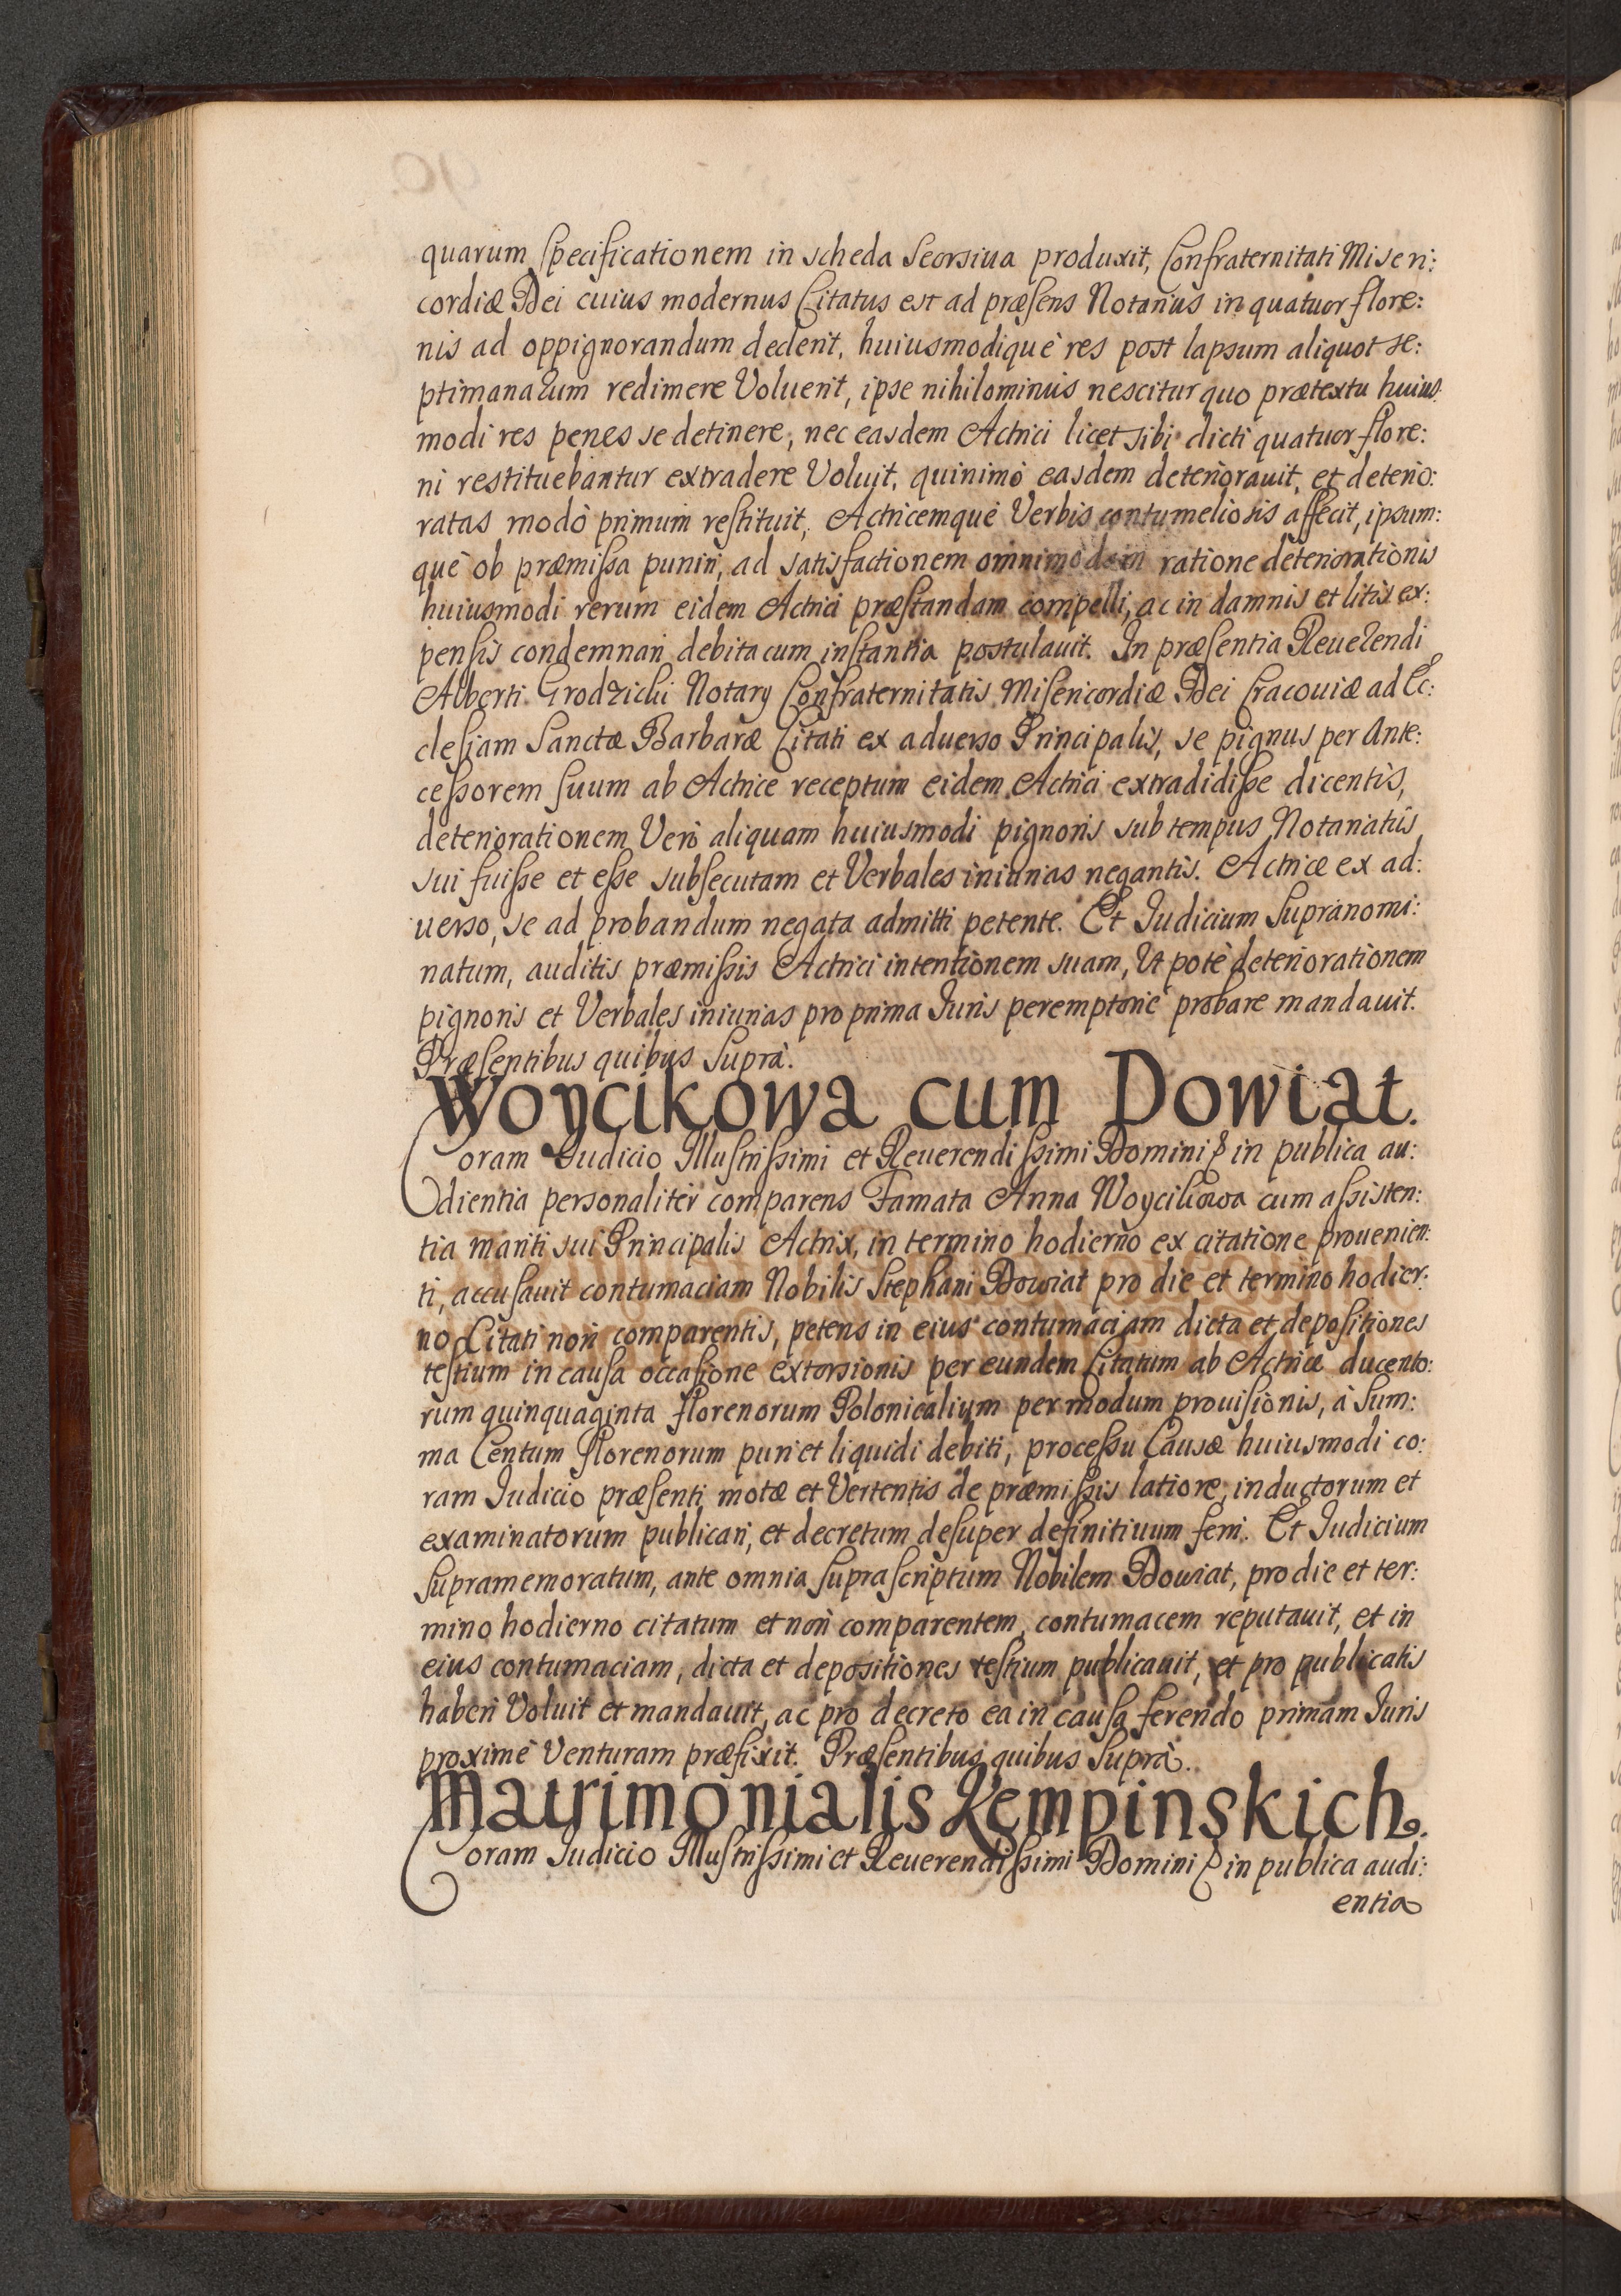 quarum specificationem in scheda seorsiua produxit, Confraternitati Miseri:
cordiæ Dei cuius modernus Citatus est ad præsens Notarius in quatuor flore:
nis ad oppignorandum dederit, huiusmodiquè res post lapsum aliquot se:
ptimanarum redimere Voluerit, ipse nihilominùs nescitur quo prætextu huius:
modi res penes se detinere, nec easdem Actrici licet sibi dicti quatuor flore:
ni restituebantur extradere Voluit, quinimò easdem deteriorauit, et deterio:
ratas modò primum restituit, Actricemquè Verbis contumeliosis affecit, ipsum:
què ob præmissa puniri, ad satisfactionem omnimodam ratione deteriorationis
huiusmodi rerum eidem Actrici præstandam compelli, ac in damnis et litis ex:
pensis condemnari debita cum instantia postulauit. In præsentia Reuerendi
Alberti Grodzicki Notary Confraternitatis Misericordiæ Dei Cracouiæ ad Ec:
clesiam Sanctæ Barbaræ Citati ex aduerso Principalis, se pignus per Ante:
cessorem suum ab Actrice receptum eidem Actrici extradidisse dicentis,
deteriorationem Verò aliquam huiusmodi pignoris sub tempus Notariatûs
sui fuisse et esse subsecutam et Verbales iniurias negantis. Actrice ex ad:
uerso, se ad probandum negata admitti petente. Et Iudicium Supranomi:
natum, auditis præmissis Actrici intentionem suam, Ut potè deteriorationem
pignoris et Verbales iniurias pro prima Iuris peremptoriè probare mandauit.
Præsentibus quibus suprà.
Woycikowa cum Dowiat.
Coram Iudicio Illustrissimi et Reuerendissimi Domini & in publica au:
dientia personalitèr comparens Famata Anna Woycikowa cum assisten:
tia mariti sui Principalis Actrix, in termino hodierno ex citatione prouenien:
ti, accusauit contumaciam Nobilis Stephani Dowiat pro die et termino hodier:
no Citati non comparentis, petens in eius contumaciam dicta et depositiones
testium in causa occasione extorsionis per eundem Citatum ab Actrice ducento:
rum quinquaginta florenorum Polonicalium per modum prouisionis, à Sum:
ma Centum Florenorum puri et liquidi debiti, processu Causæ huiusmodi co:
ram Iudicio præsenti motæ et Vertentis de præmissis latiore, inductorum et
examinatorum publicari, et decretum desuper definitiuum ferri. Et Iudicium
supramemoratum, ante omnia suprascriptum Nobilem Dowiat, pro die et ter:
mino hodierno citatum et non comparentem, contumacem reputauit, et in
eius contumaciam, dicta et depositiones testium publicauit, et pro publicatis
haberi Voluit et mandauit, ac pro decreto ea in causa ferendo primam Iuris
proximè Venturam præfixit. Præsentibus quibus suprà.
Matrimonialis Kempinskich.
Coram Iudicio Illustrissimi et Reuerendissimi Domini & in publica audi:
entia